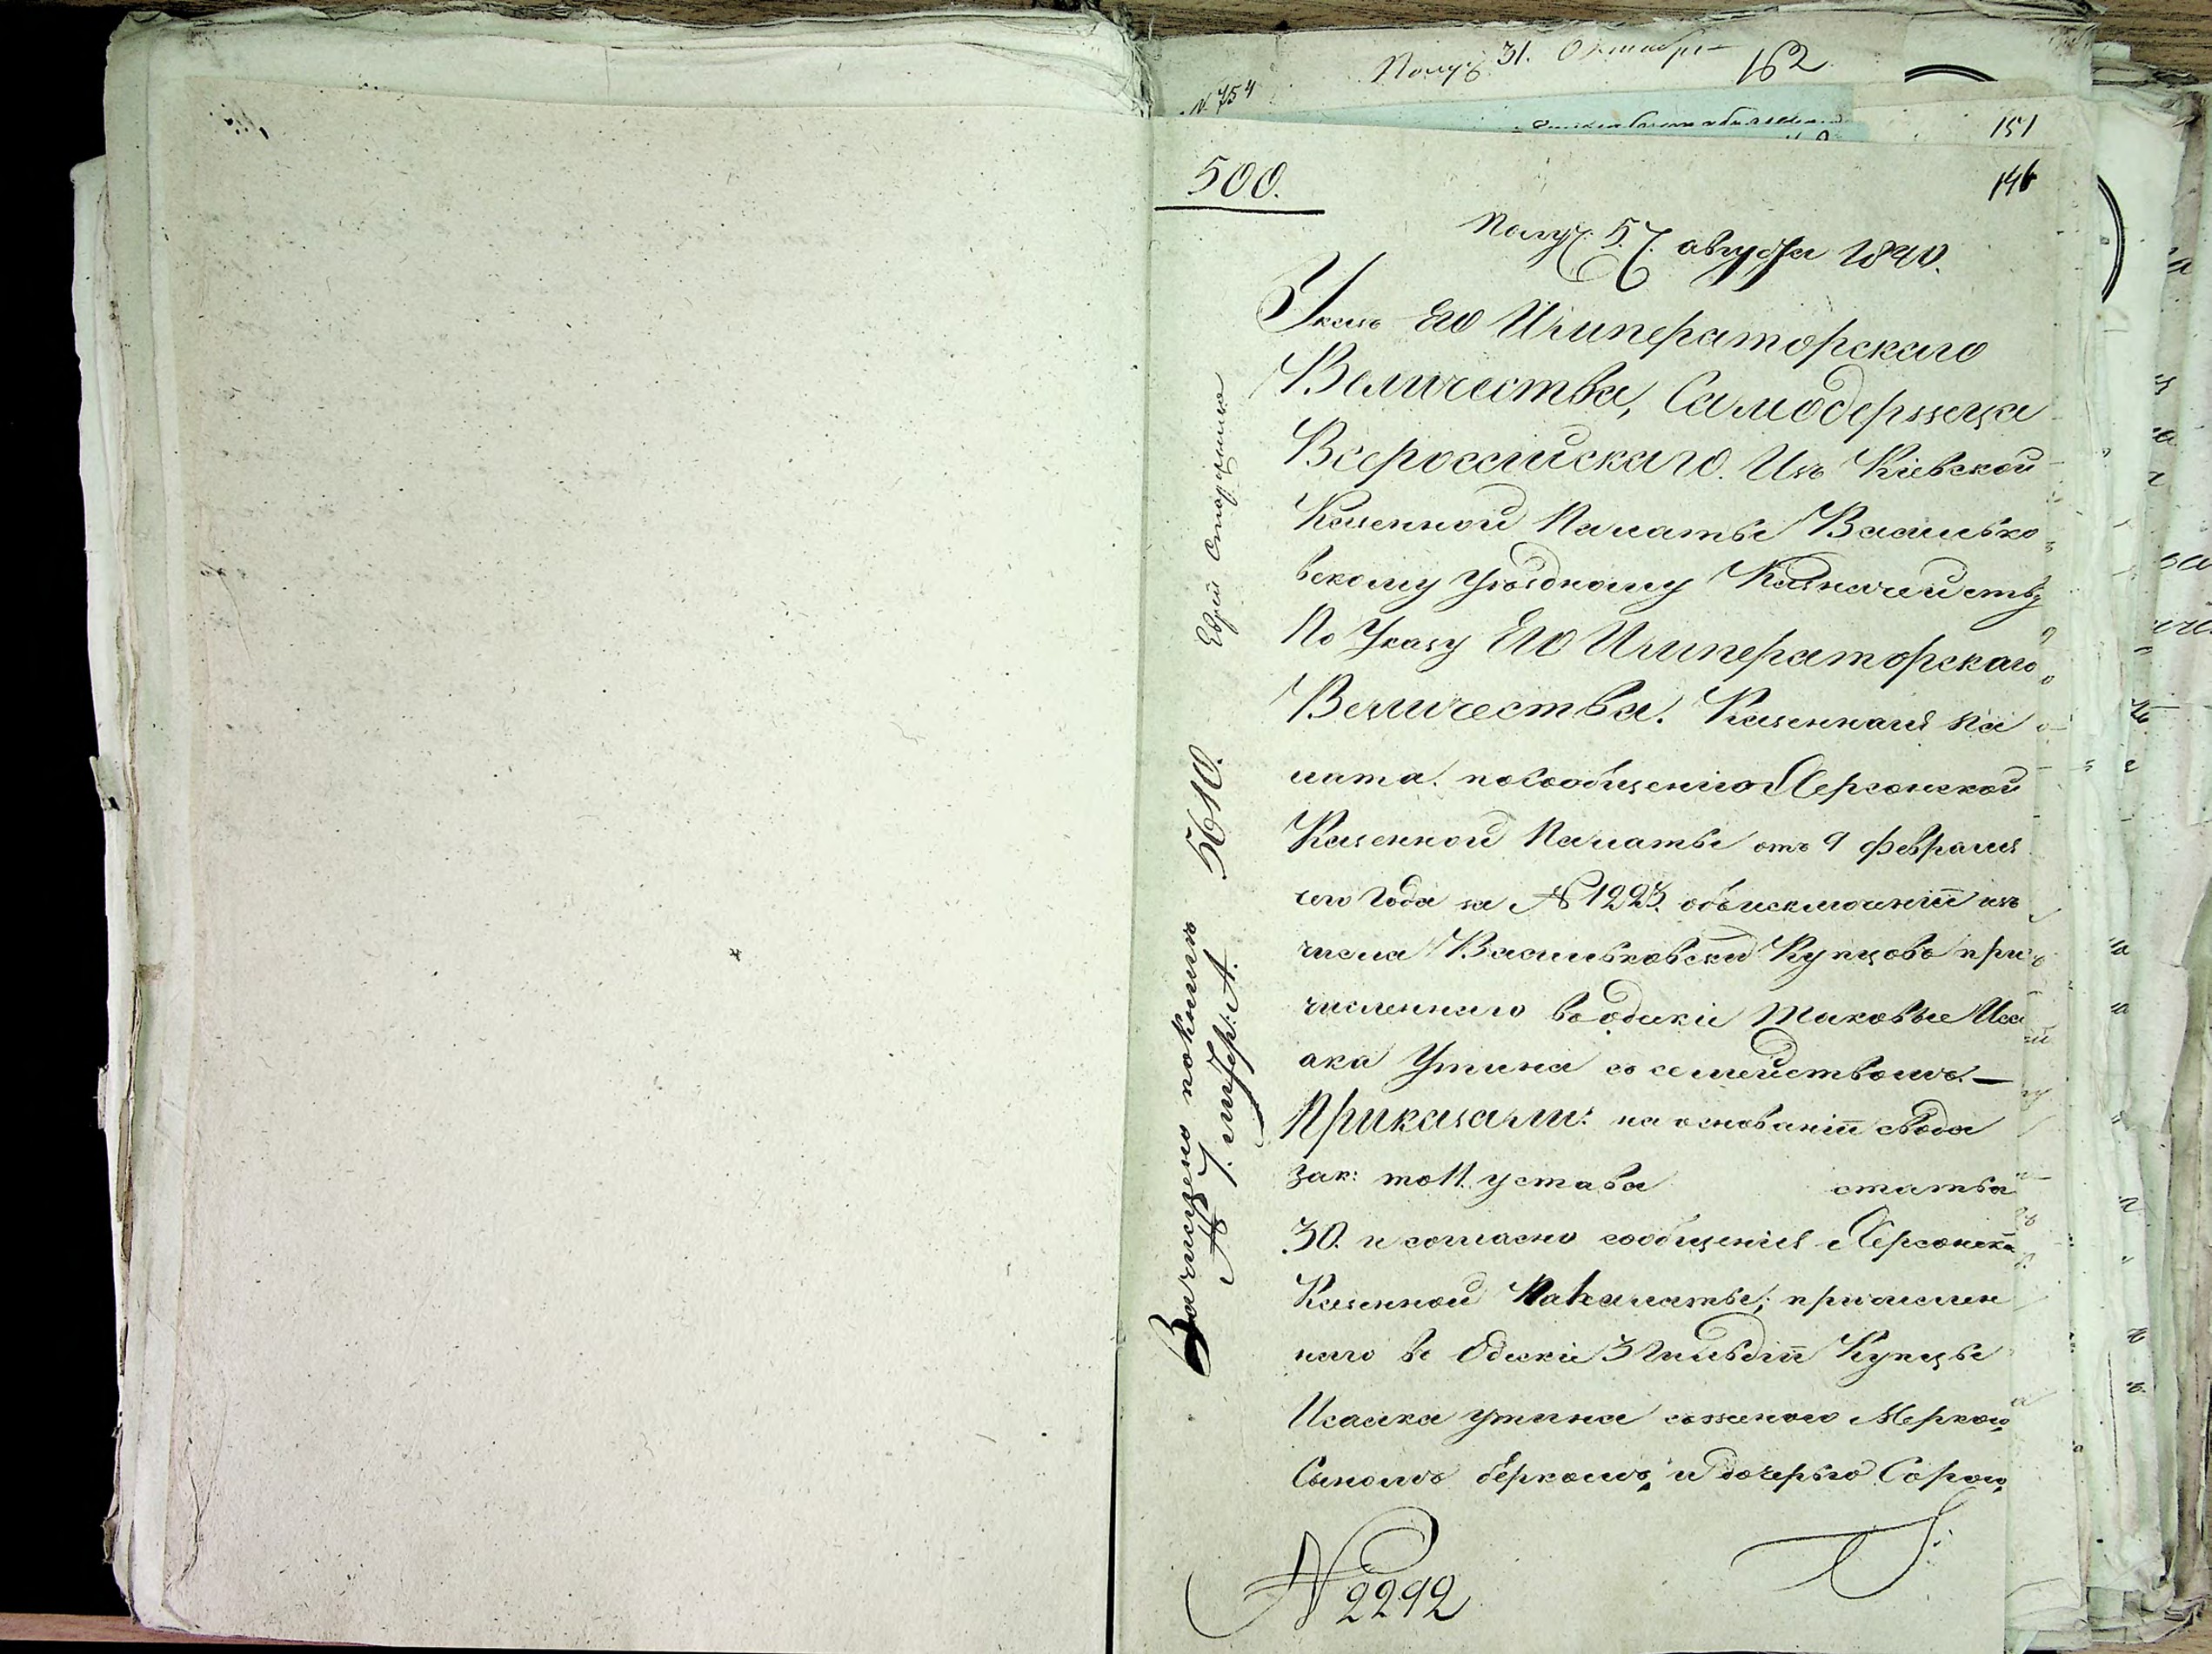 Получ 31. Октября
162
№ 754
151
500.
146
Получ: 5. августа 1840.
Указъ Его Императорскаго
Величества, Самодержца
Всероссійскаго. Изъ Кіевской
Казенной Палаты Василько
вскому Уѣздному Казначейству
По Указу Его Императорскаго
Величества. Казенная Па
лата. по сообщенію Херсонской
Казенной Палаты отъ 9 февраля
сего года за № 1223. объ исключеніи изъ
числа Васильковски Купцовъ при
численнаго въ Одескіе таковые Иса
ака Утина со семействомъ. —
Приказали: на основаніи свода
зак: то 11. устава статьи
30. и согласно сообщенія Херсонско
Казенной Палаты, причислен
наго въ Одескіе 3 Гильдіи Купцы
Исаака Утина съ женою Меркою,
Сыномъ беркомъ, и дочерью Сорою,
№ 2292
Зачислено по книгѣ 5610.
№ 7. литер: А.